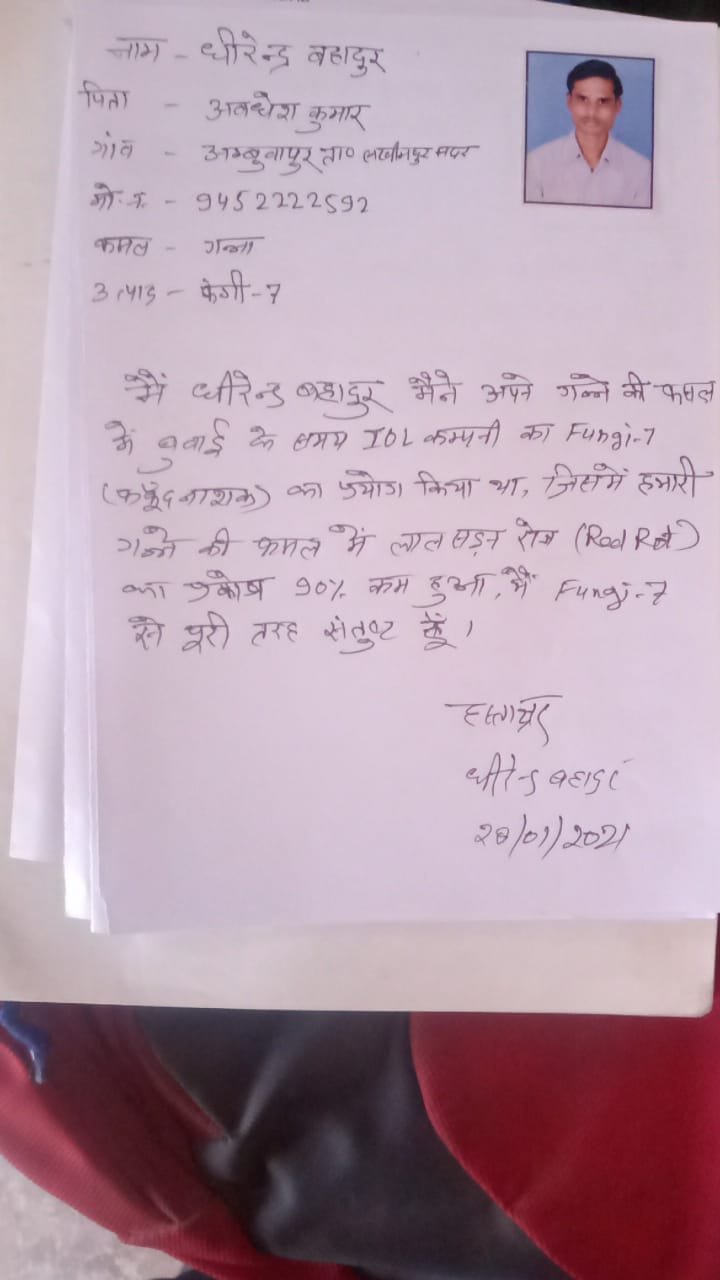 नाम - धीरेन्द्र बहादुर
पिता - अवधेश कुमार
गांव - अम्बुवापुर ता० लखीमपुर सदर
मो. न. - 9452222592
फसल - गन्ना
उत्पाद - फंगी-7
मैं धीरेन्द्र बहादुर मैने अपने गन्ने की फसल
में बुवाई के समय IOL कम्पनी का Fungi-7
(फफूंदनाशक) का प्रयोग किया था, जिसमें हमारी
गन्ने की फसल में लाल सड़न रोग (Red Rot)
का प्रकोप 90% कम हुआ, मैं Fungi-7
से पूरी तरह संतुष्ट हूँ।
हस्ताक्षर
धीरेन्द्र बहादुर
28/01/2021